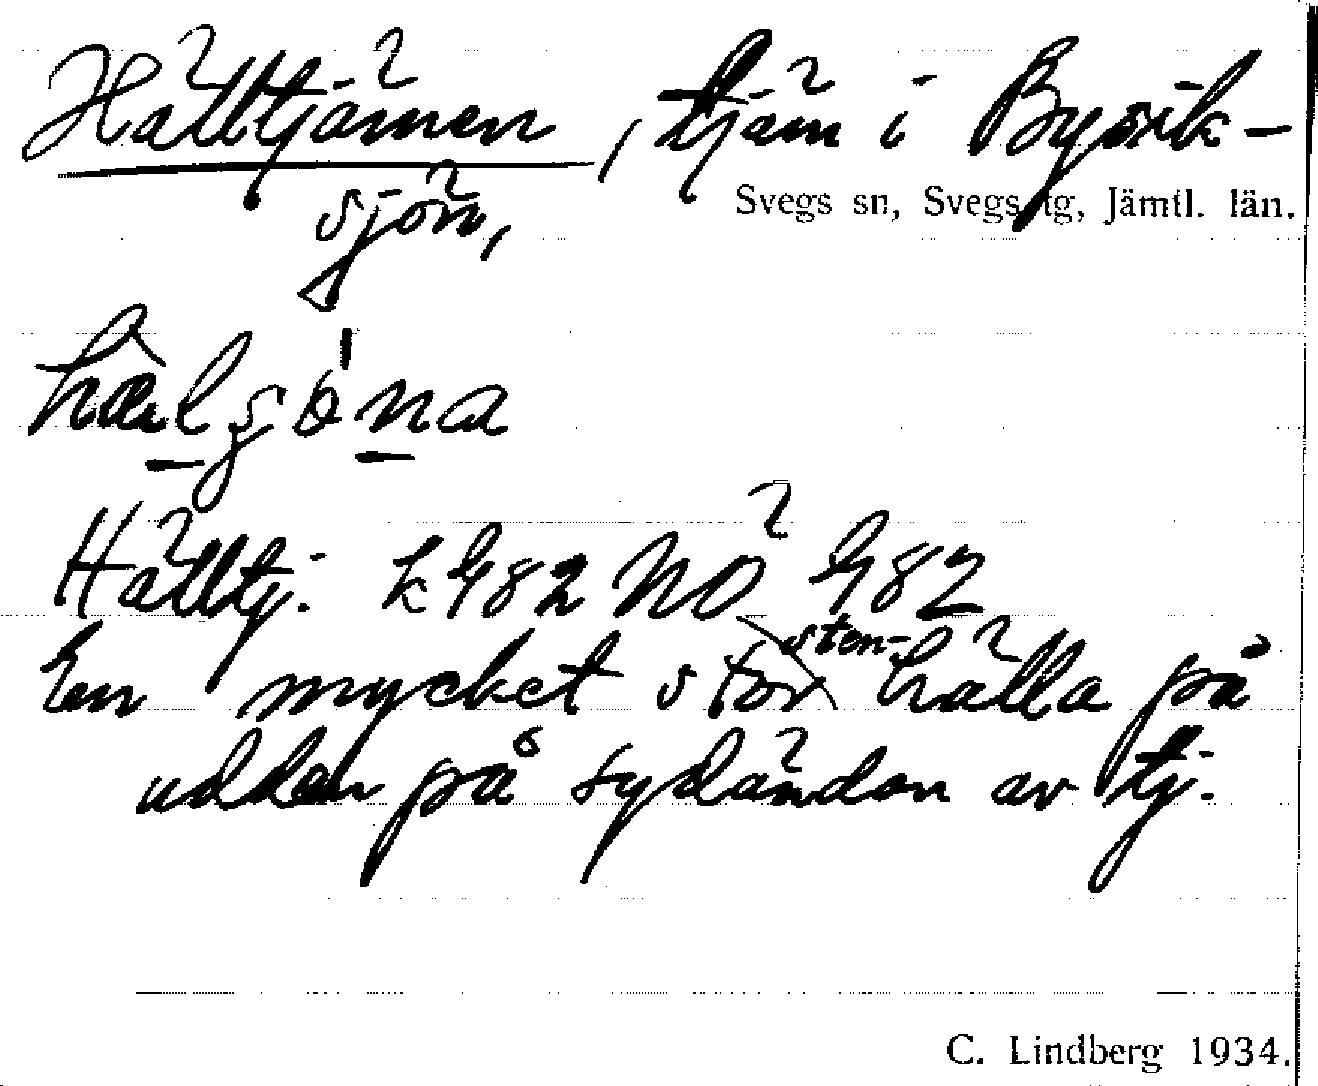 Hälltjärnen, tjärn i Byörik-
Svegs sn, Svegs tg, Jämtl. län.
sjön,
Hälltj. k 982 NO 982
En mycket stor sten- hälla på
udden på sydändan av tj.
C. Lindberg 1934.